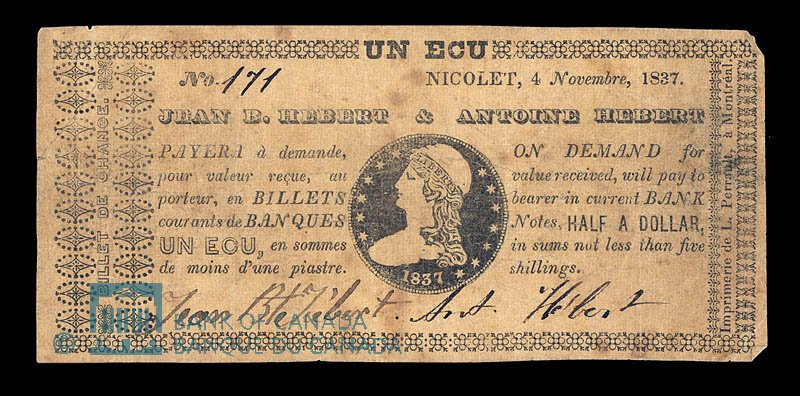 UN ECU
No. 171
NICOLET, 4 Novembre, 1837.
JEAN B. HEBERT & ANTOINE HEBERT
PAYERA à demande,
pour valeur reçue, au
porteur, en BILLETS
courants de BANQUES
UN ECU, en sommes
de moins d'une piastre.
LIBERTY
1837
ON DEMAND for
value received, will pay to
bearer in current BANK
Notes, HALF A DOLLAR,
in sums not less than five
shillings.
Jean Bt Hebert. Ant. Hebert
BILLET DE CHANGE.
Imprimerie de L. Perrault, à Montréal.
© BANK OF CANADA
BANQUE DU CANADA